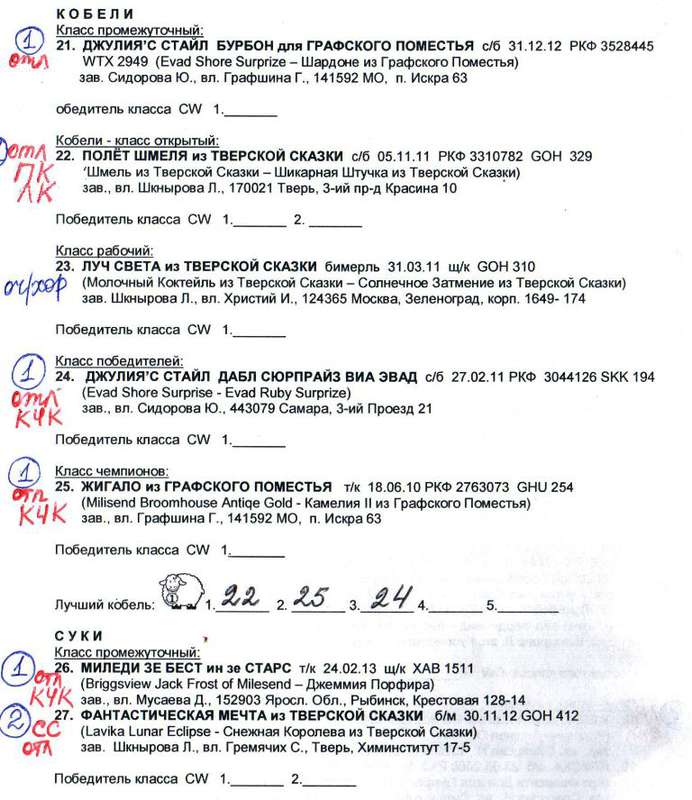 КОБЕЛИ
Класс промежуточный:
1
отл
21. ДЖУЛИЯ'С СТАЙЛ БУРБОН для ГРАФСКОГО ПОМЕСТЬЯ с/б 31.12.12 РКФ 3528445
WTX 2949 (Evad Shore Surprize – Шардоне из Графского Поместья)
зав. Сидорова Ю., вл. Графшина Г., 141592 МО, п. Искра 63
обедитель класса CW 1.______
Кобели - класс открытый:
отл
ПК
ЛК
22. ПОЛЁТ ШМЕЛЯ из ТВЕРСКОЙ СКАЗКИ с/б 05.11.11 РКФ 3310782 GOH 329
'Шмель из Тверской Сказки – Шикарная Штучка из Тверской Сказки)
зав., вл. Шкнырова Л., 170021 Тверь, 3-ий пр-д Красина 10
Победитель класса CW 1.______ 2. ______
Класс рабочий:
оч/хор
23. ЛУЧ СВЕТА из ТВЕРСКОЙ СКАЗКИ бимерль 31.03.11 щ/к GOH 310
(Молочный Коктейль из Тверской Сказки – Солнечное Затмение из Тверской Сказки)
зав. Шкнырова Л., вл. Христий И., 124365 Москва, Зеленоград, корп. 1649- 174
Победитель класса CW 1.______
Класс победителей:
1
отл
КЧК
24. ДЖУЛИЯ'С СТАЙЛ ДАБЛ СЮРПРАЙЗ ВИА ЭВАД с/б 27.02.11 РКФ 3044126 SKK 194
(Evad Shore Surprise - Evad Ruby Surprize)
зав., вл. Сидорова Ю., 443079 Самара, 3-ий Проезд 21
Победитель класса CW 1.______
Класс чемпионов:
1
отл
КЧК
25. ЖИГАЛО из ГРАФСКОГО ПОМЕСТЬЯ т/к 18.06.10 РКФ 2763073 GHU 254
(Milisend Broomhouse Antiqe Gold - Камелия II из Графского Поместья)
зав., вл. Графшина Г., 141592 МО, п. Искра 63
Победитель класса CW 1.______
Лучший кобель: 1 1. 22 2. 25 3. 24 4.______ 5.______
СУКИ
Класс промежуточный:
1
отл
КЧК
26. МИЛЕДИ ЗЕ БЕСТ ин зе СТАРС т/к 24.02.13 щ/к ХАВ 1511
(Briggsview Jack Frost of Milesend – Джеммия Порфира)
зав., вл. Мусаева Д., 152903 Яросл. Обл., Рыбинск, Крестовая 128-14
2
СС
отл
27. ФАНТАСТИЧЕСКАЯ МЕЧТА из ТВЕРСКОЙ СКАЗКИ б/м 30.11.12 GOH 412
(Lavika Lunar Eclipse - Снежная Королева из Тверской Сказки)
зав. Шкнырова Л., вл. Гремячих С., Тверь, Химинститут 17-5
Победитель класса CW 1.______ 2.______